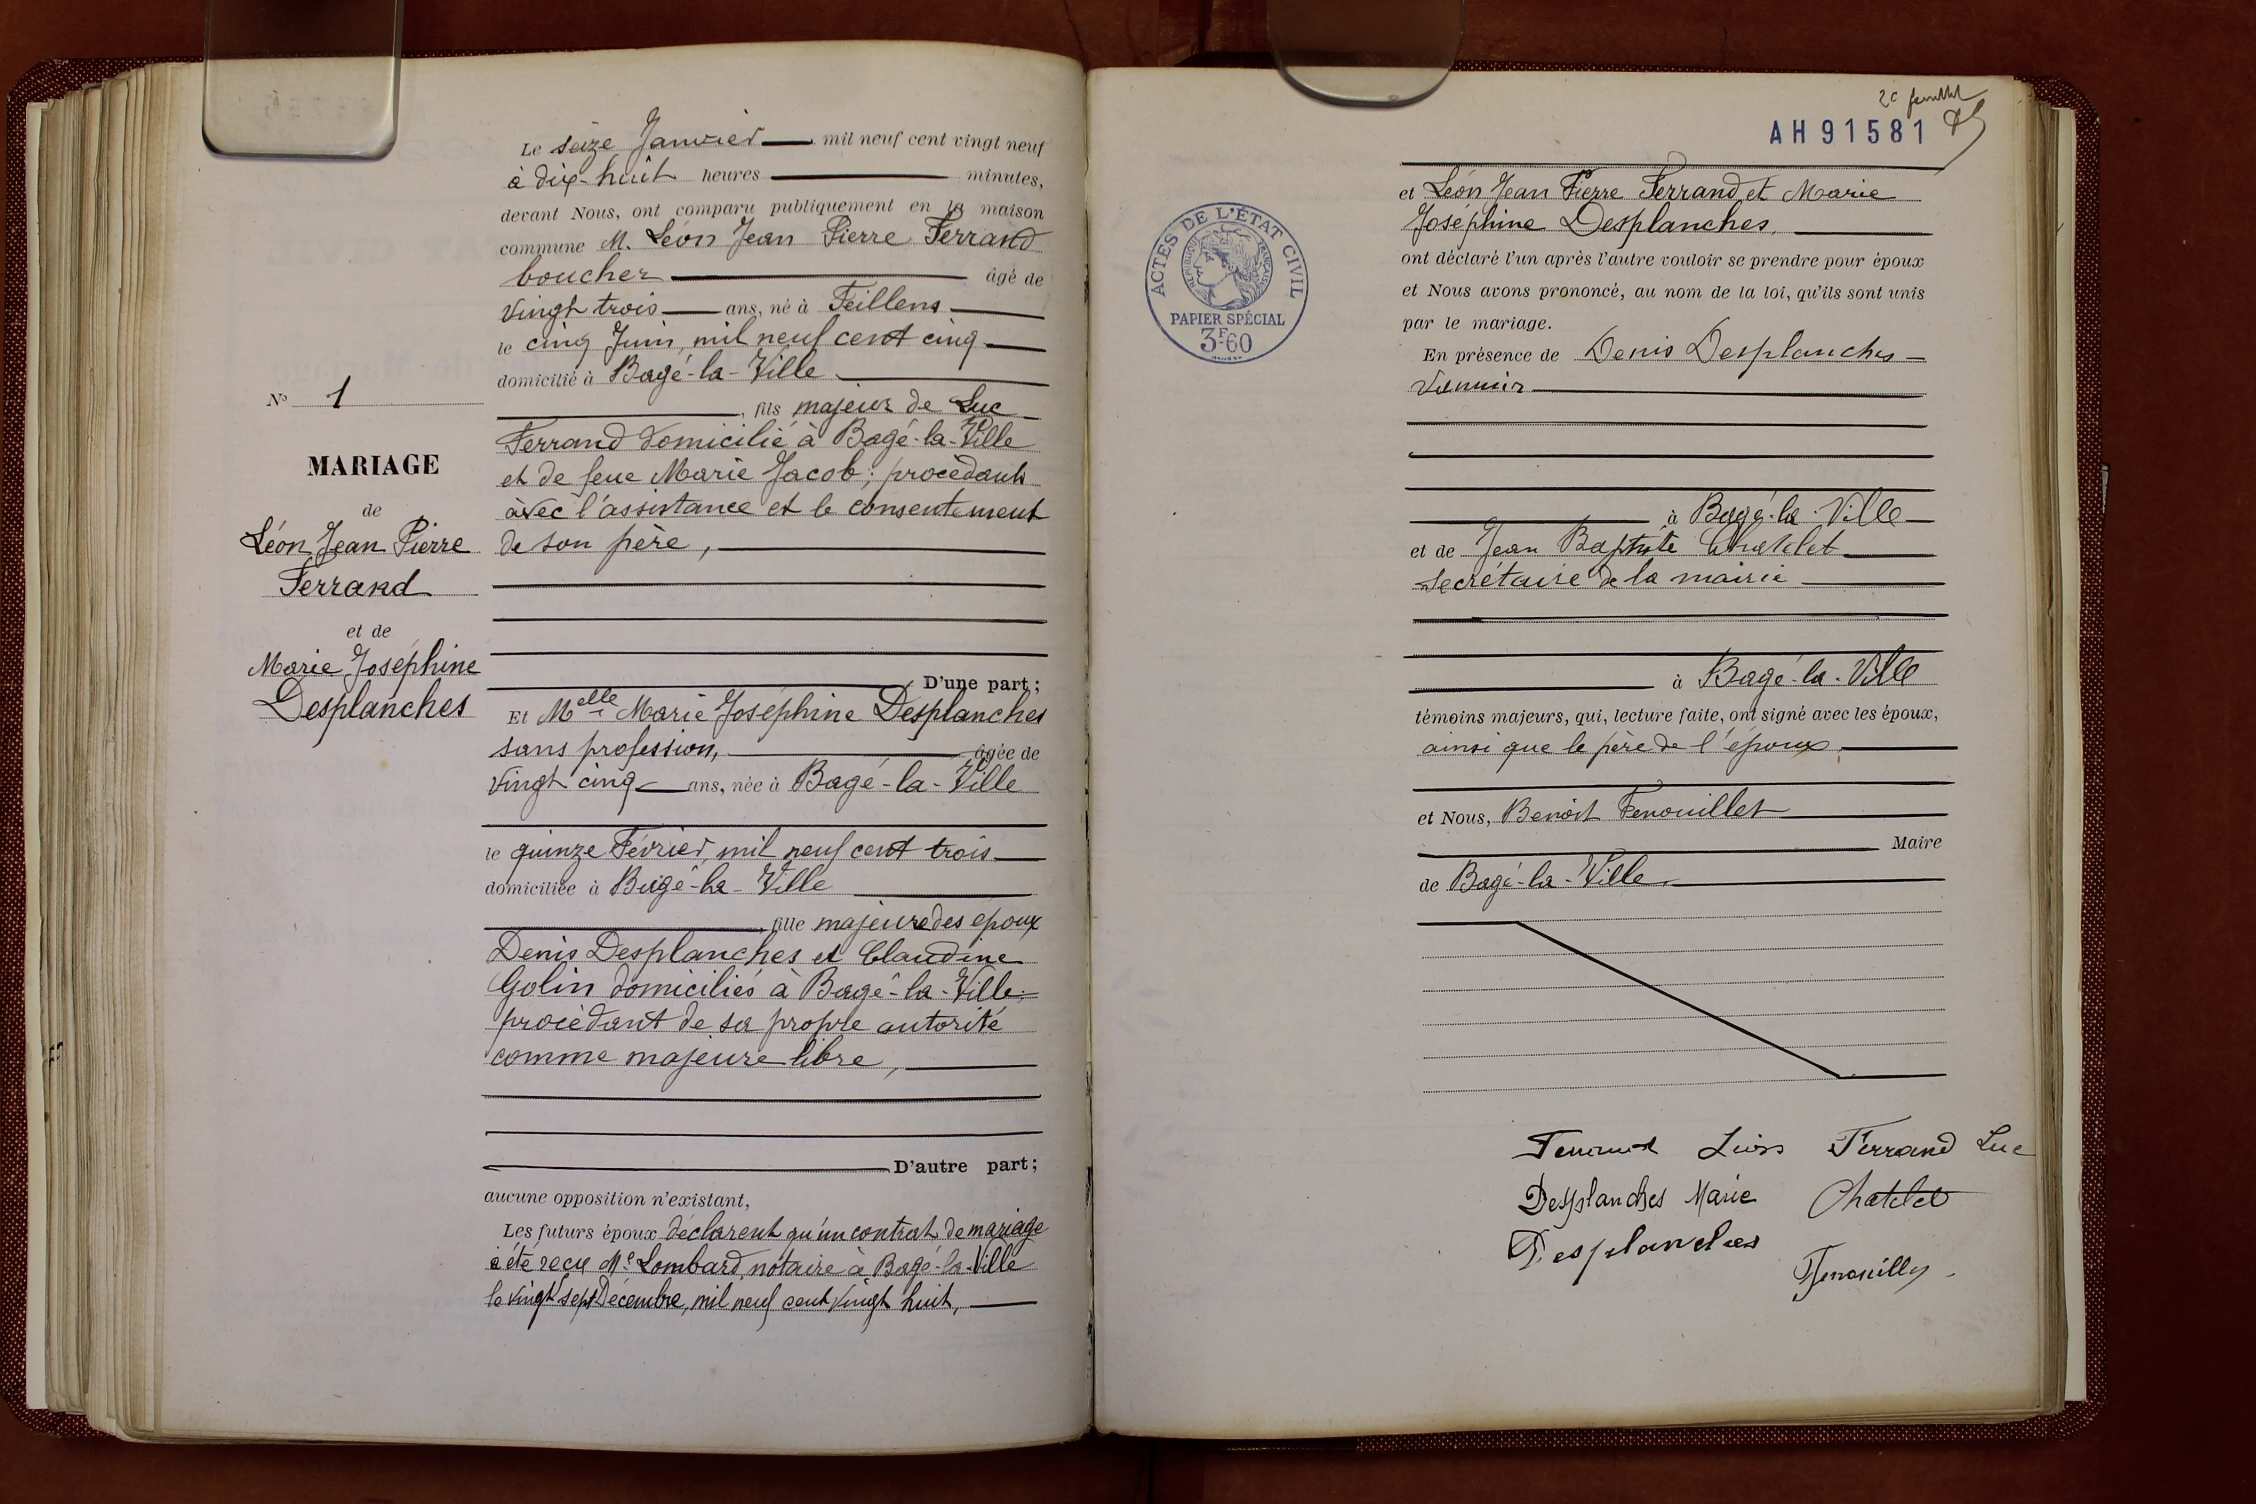 N° 1
MARIAGE
de
Léon Jean Pierre
Ferrand
et de
Marie Joséphine
Desplanches
Le seize Janvier mil neuf cent vingt neuf
à dix-huit heures minutes,
devant Nous, ont comparu publiquement en la maison
commune M. Léon Jean Pierre Ferrand
boucher âgé de
vingt trois ans, né à Feillens
le cinq Juin, mil neuf cent cinq
domicilié à Bagé-la-Ville
, fils majeur de Luc
Ferrand domicilié à Bagé-la-Ville
et de feue Marie Jacob; procédant
avec l'assistance et le consentement
de son père,
D'une part;
Et Melle Marie Joséphine Desplanches
sans profession, âgée de
vingt cinq ans, née à Bagé-la-Ville
le quinze Février, mil neuf cent trois
domiciliée à Bagé-la-Ville
, fille majeure des époux
Denis Desplanches et Claudine
Golin domiciliés à Bagé-la-Ville
procédant de sa propre autorité
comme majeure libre,
D'autre part;
aucune opposition n'existant,
Les futurs époux déclarent qu'un contrat de mariage
a été reçu Me Lombard, notaire à Bagé-la-Ville
le vingt sept Décembre, mil neuf cent vingt huit,
2e feuillet
AH91581
ACTES DE L'ÉTAT CIVIL
RÉPUBLIQUE FRANÇAISE
PAPIER SPÉCIAL
3F.60
et Léon Jean Pierre Ferrand et Marie
Joséphine Desplanches,
ont déclaré l'un après l'autre vouloir se prendre pour époux
et Nous avons prononcé, au nom de la loi, qu'ils sont unis
par le mariage.
En présence de Denis Desplanches
vannier
à Bagé-la-Ville
et de Jean Baptiste Chatelet
secrétaire de la mairie
à Bagé-la-Ville
témoins majeurs, qui, lecture faite, ont signé avec les époux,
ainsi que le père de l'époux
et Nous, Benoît Fenouillet
Maire
de Bagé-la-Ville.
Ferrand Léon Ferrand Luc
Desplanches Marie Chatelet
Desplanches
Fenouillet